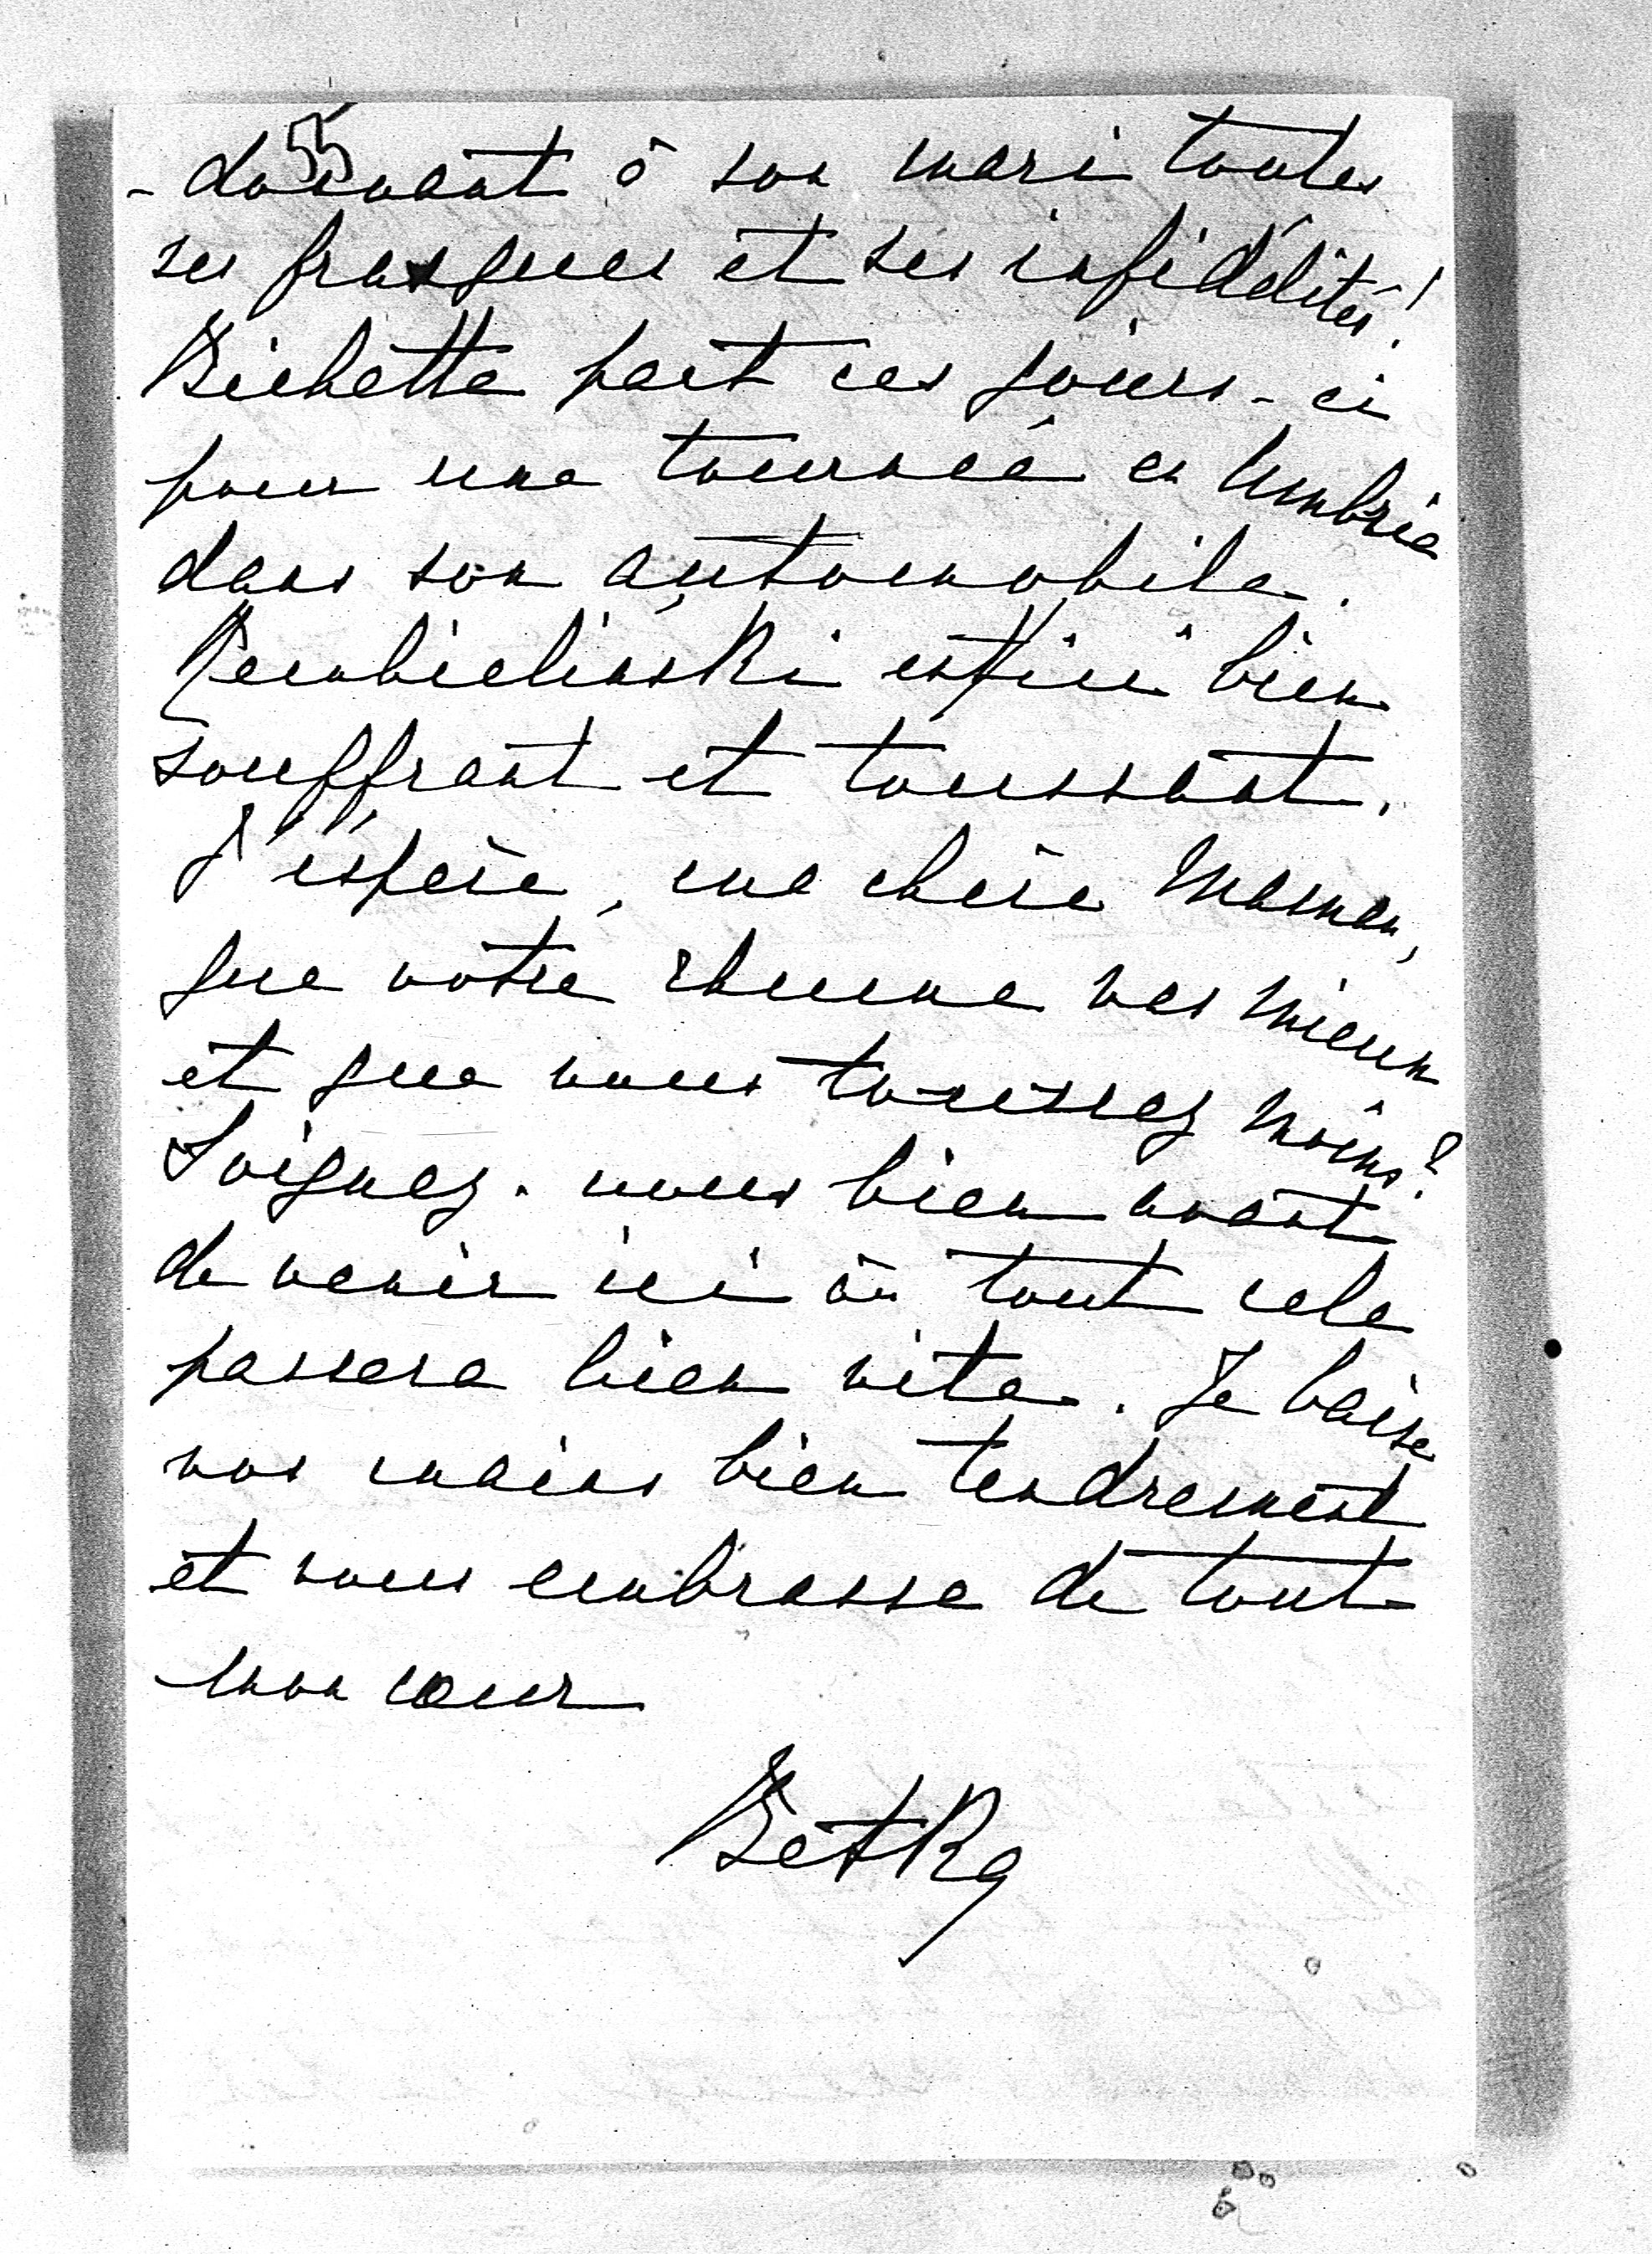 55
- donnant à son mari toutes
ses frasques et ses infidélités!
Bichette part ces jours-ci
pour une tournée en Umbrie
dans son automobile.
est ici bien
souffrant et toussant.
J'éspère, ma chère Maman,
que votre rhume vas mieux
et que vous toussez moins?
Soignez-vous bien avant
de venir ici où tout cela
passera bien vite. Je baise
vos mains bien tendrement
et vous embrasse de tout
mon cœur
BetRg